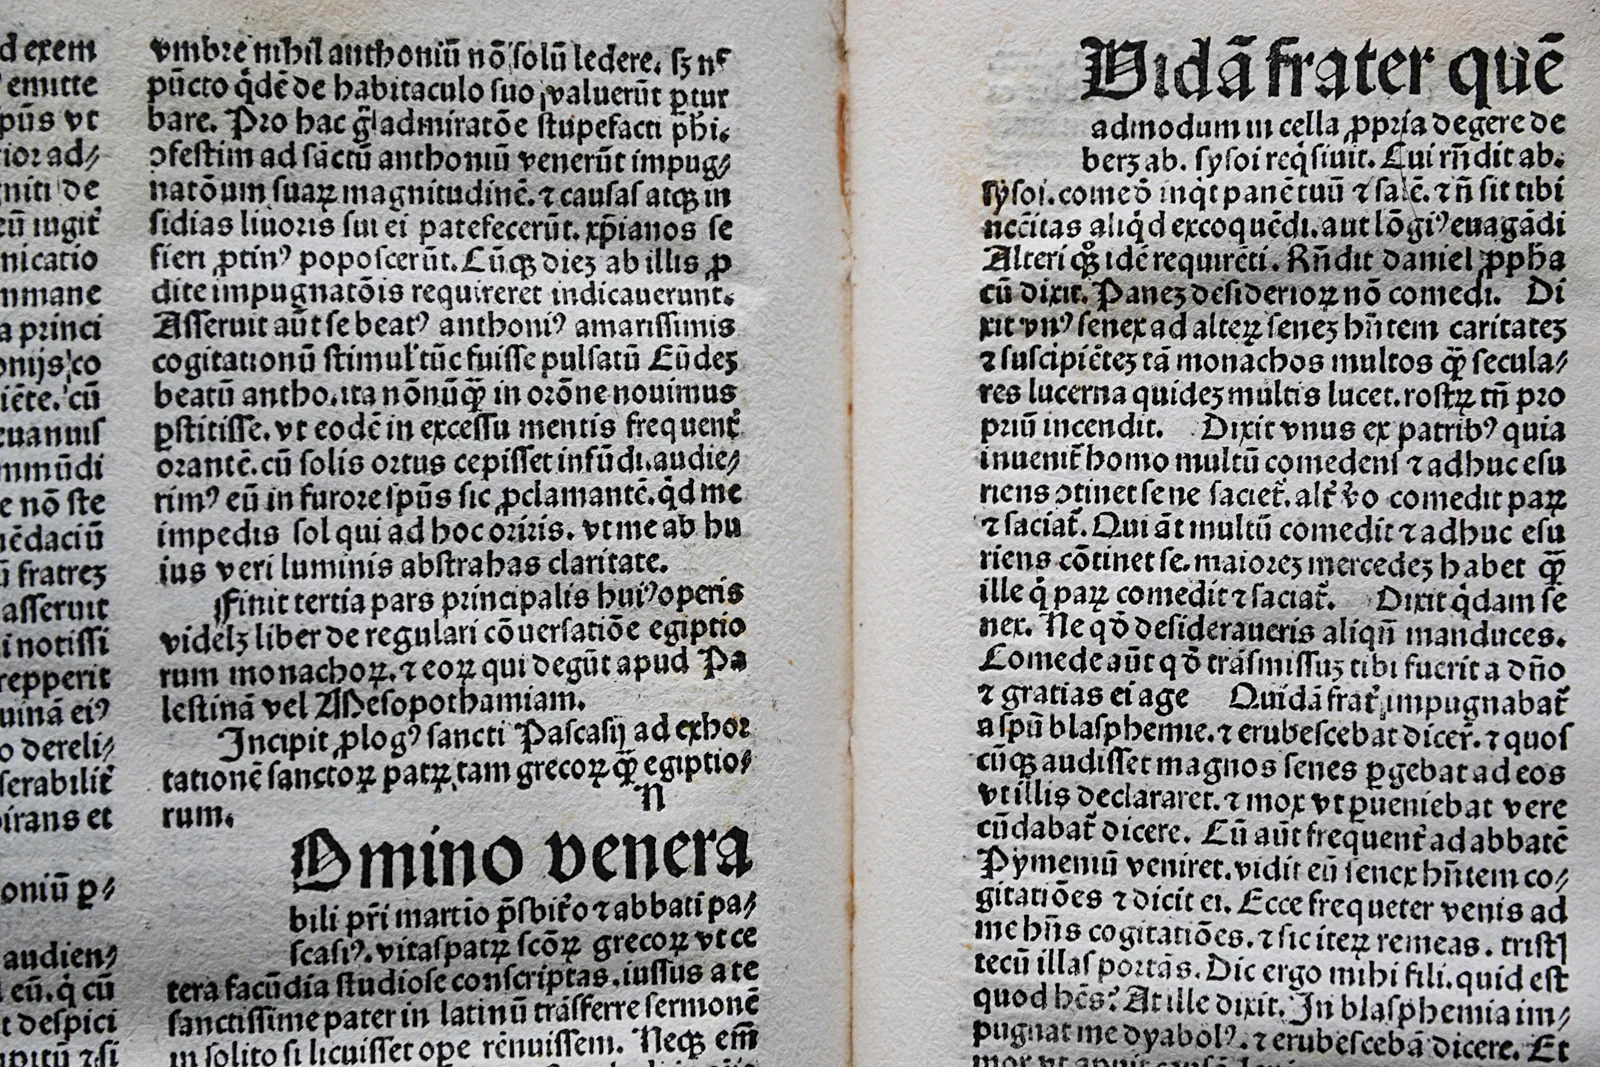 d exem
emitte
pūs vt
tior ad⸗
gniti de
eū ingit̄
nicatio
mmane
a princi
onijs co
iēte. cū
euanuis
mmūdi
e nō ste
ēdaciū
ū fratreꝫ
asseruit
i notissi
repperit
uinā ei⁹
o dereli⸗
serabilit̄
pirans et
oniū ꝑ⸗
audien⸗
eū. q̇ cū
t despici
vmbre nihil anthoniū nō solū ledere. sꝫ n
pūcto q̇dē de habitaculo suo valuerūt ꝑtur
bare. Pro hac g̃ admiratōe stupefacti ph̄i.
ꝯfestim ad sāctū anthoniū venerūt impug⸗
natōum suaꝝ magnitudinē. ⁊ causas atqꝫ in
sidias liuoris sui ei patefecerūt. xp̄ianos se
fieri ꝓtin⁹ poposcerūt. Cūqꝫ dieꝫ ab illis ꝓ
dite impugnatōis requireret indicauerunt.
Asseruit aūt se beat⁹ anthoni⁹ amarissimis
cogitationū stimul' tūc fuisse pulsatū Eūdeꝫ
beatū antho. ita nōnūqꝫ̄ in orōne nouimus
ꝑstitisse. vt eodē in excessu mentis frequent̄
orantē. cū solis ortus cepisset infūdi. audie⸗
rim⁹ eū in furore sp̄us sic ꝓclamantē. q̇d me
impedis sol qui ad hoc oriris. vt me ab hu
ius veri luminis abstrahas claritate.
Finit tertia pars principalis hui⁹ operis
videlꝫ liber de regulari cōuersatiōe egiptio
rum monachoꝝ. ⁊ eoꝝ qui degūt apud Pa
lestinā vel Mesopothamiam.
Incipit ꝓlog⁹ sancti Pascasij ad exhor
tationē sanctoꝝ patꝝ tam grecoꝝ qꝫ̄ egiptio⸗
rum.
n
Omino venera
bili pr̄i martio p̄sbit̄o ⁊ abbati pa⸗
scasi⁹. vitas patꝝ scōꝝ grecoꝝ vt ce
tera facūdia studiose conscriptas. iussus a te
sanctissime pater in latinū trāsferre sermonē
in solito si licuisset ope rēnuissem. Neqꝫ em̄
Uidā frater quē
admodum in cella ꝓpria degere de
berꝫ ab. sysoi req̇siuit. Cui rn̄dit ab.
sysoi. comeō inq̇t panē tuū ⁊ salē. ⁊ n̄ sit tibi
nec̄citas aliq̇d excoquēdi. aut lōgi⁹ euagādi
Alteri qꝫ idē requirēti. Rn̄dit daniel ꝓph̄a
cū dixit. Paneꝫ desiderioꝝ nō comedi. Di
xit vn⁹ senex ad alteꝝ seneꝫ hn̄tem caritateꝫ
⁊ suscipiēteꝫ tā monachos multos qꝫ̄ secula⸗
res lucerna quideꝫ multis lucet. rostꝝ tn̄ pro
priū incendit. Dixit vnus ex patrib⁹ quia
inuenit̄ homo multū comedens ⁊ adhuc esu
riens ꝯtinet se ne saciet̄. alt̄ v̇o comedit paꝝ
⁊ saciat̄. Qui āt multū comedit ⁊ adhuc esu
riens cōtinet se. maioreꝫ mercedeꝫ habet qꝫ̄
ille q̇ paꝝ comedit ⁊ saciat̄. Dixit q̇dam se
nex. Ne qd̄ desideraueris aliqn̄ manduces.
Comede aūt qd̄ trāsmissuꝫ tibi fuerit a dn̄o
⁊ gratias ei age Quidā frat̄ impugnabat̄
a spū blasphemie. ⁊ erubescebat dicer̄. ⁊ quos
cūqꝫ audisset magnos senes ꝑgebat ad eos
vt illis declararet. ⁊ mox vt ꝑueniebat vere
cūdabat̄ dicere. Cū aūt frequent̄ ad abbatē
Pymeniū veniret. vidit eū senex hn̄tem co⸗
gitatiōes ⁊ dicit ei. Ecce frequeter venis ad
me hn̄s cogitatiōes. ⁊ sic iteꝝ remeas. trist
tecū illas portās. Dic ergo mihi fili. quid est
quod hēs? At ille dixit. In blasphemia im⸗
pugnat me dyabol⁹. ⁊ erubescebā dicere. Et